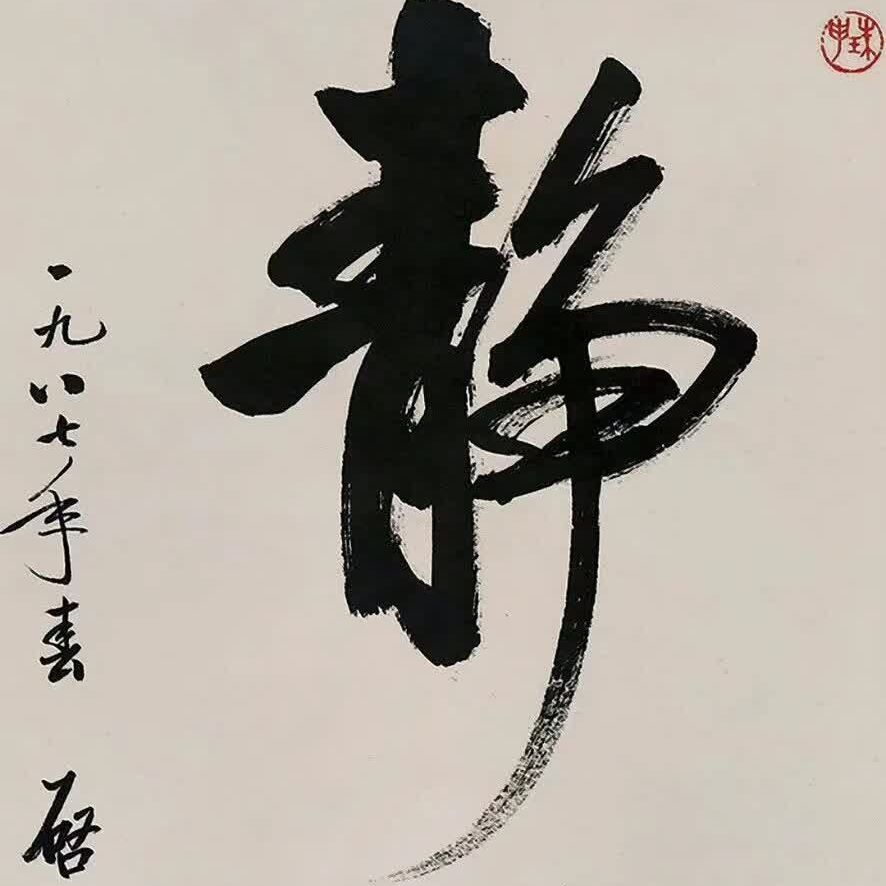 珠申
静
一九八七年春 启